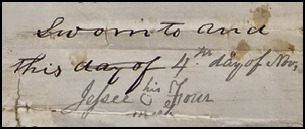 Sworn to and
this day of 4th day of Nov
his
Jesse C Four
mark